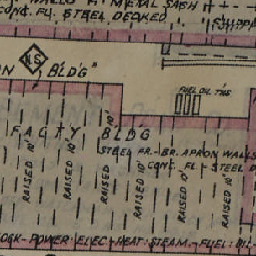 METAL SASH
CONC. FL. STEEL DECKED
BLD'G
FUEL OIL TKS
FACTY BLD'G
STEEL FR.- BR. APRON WALLS
CONC. FL - STEEL D
RAISED 10'
RAISED 10'
RAISED 10'
RAISED 10'
RAISED 10'
RAISED 10'
OCK-POWER: ELEC - HEAT: STEAM - FUEL: OIL -